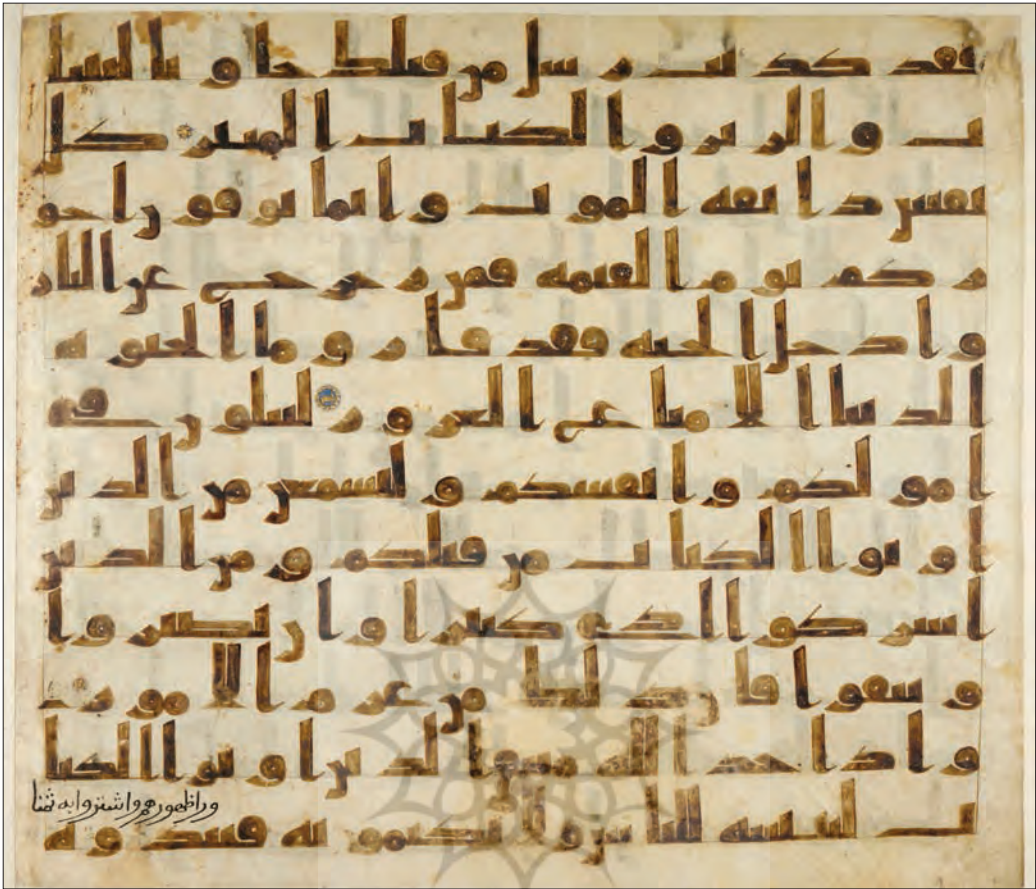 فقد كذب رسل من قبلك جاو بالبينا
ت والزبر والكتاب المنير كل
نفس ذائقة الموت وانما توفون اجو
ركم يوم القيمة فمن زحزح عن النار
وادخل الجنة فقد فاز وما الحيوة
الدنيا الا متاع الغرور لتبلون في
امولكم وانفسكم ولتسمعن من الذين
اوتوا الكتاب من قبلكم ومن الذين
اشركوا اذى كثيرا وان تصبروا
وتتقوا فان ذلك من عزم الامور
واذ اخذ الله ميثق الذين اوتوا الكتا
ب لتبيننه للناس ولا تكتمونه فنبذوه
ورا ظهورهم واشتروا به ثمنا